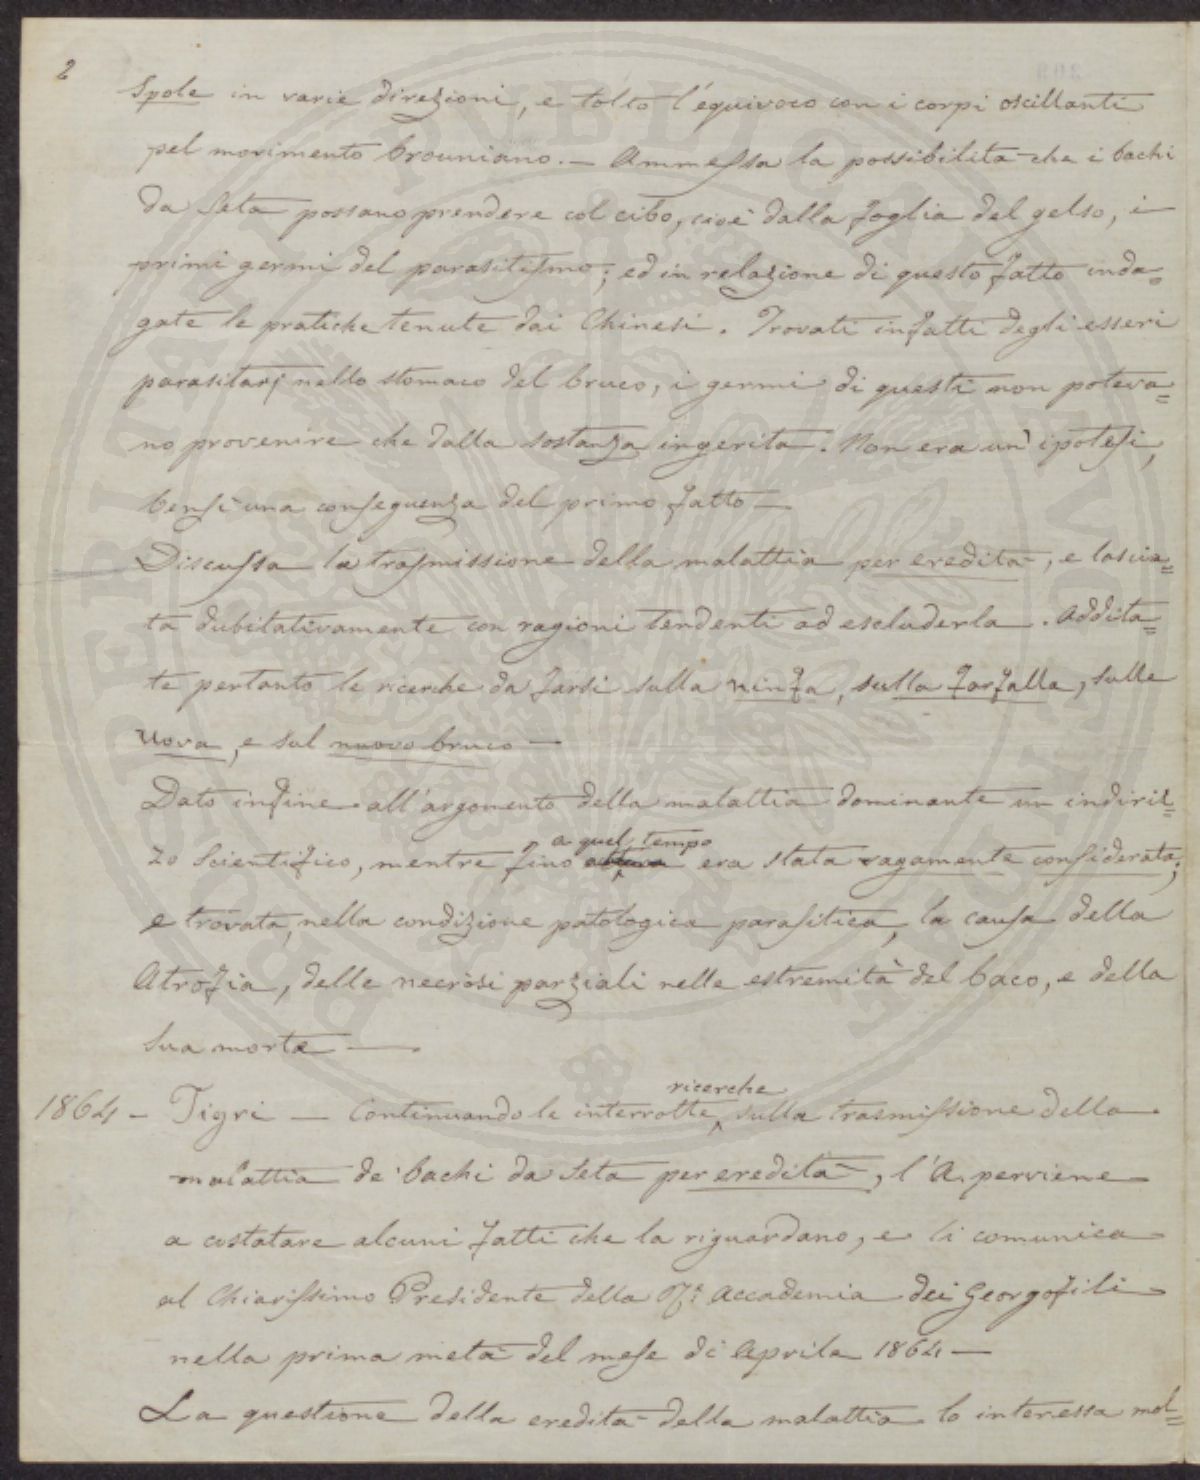 2
Spole in varie direzioni, e tolto l'equivoco con i corpi oscillanti
pel movimento browniano. — Ammessa la possibilità che i bachi
da seta possano prendere col cibo, cioè dalla foglia del gelso, i
primi germi del parasitismo; ed in relazione di questo fatto inda=
gate le pratiche tenute dai Chinesi. Trovati infatti degli esseri
parasitarj nello stomaco del bruco, i germi di questi non poteva=
no provenire che dalla sostanza ingerita. Non era un' ipotesi,
bensì una conseguenza del primo fatto —
Discussa la trasmissione della malattia per eredità, e lascia=
ta dubitativamente con ragioni tendenti ad escluderla. Addita=
te pertanto le ricerche da farsi sulla ninfa, sulla farfalla, sulle
uova, e sul nuovo bruco —
Dato infine all'argomento della malattia dominante un indiriz=
a quel tempo
zo scientifico, mentre fino era stata vagamente considerata;
e trovata, nella condizione patologica parasitica, la causa della
Atrofia, delle necrosi parziali nelle estremità del baco, e della
sua morte —
ricerche
1864 — Tigri — Continuando le interrotte sulla trasmissione della
malattia de' bachi da seta per eredità, l'A. perviene
a costatare alcuni fatti che la riguardano, e li comunica
al Chiarissimo Presidente della R. Accademia dei Georgofili
nella prima metà del mese di Aprile 1864 —
La questione della eredità della malattia lo interessa mol=